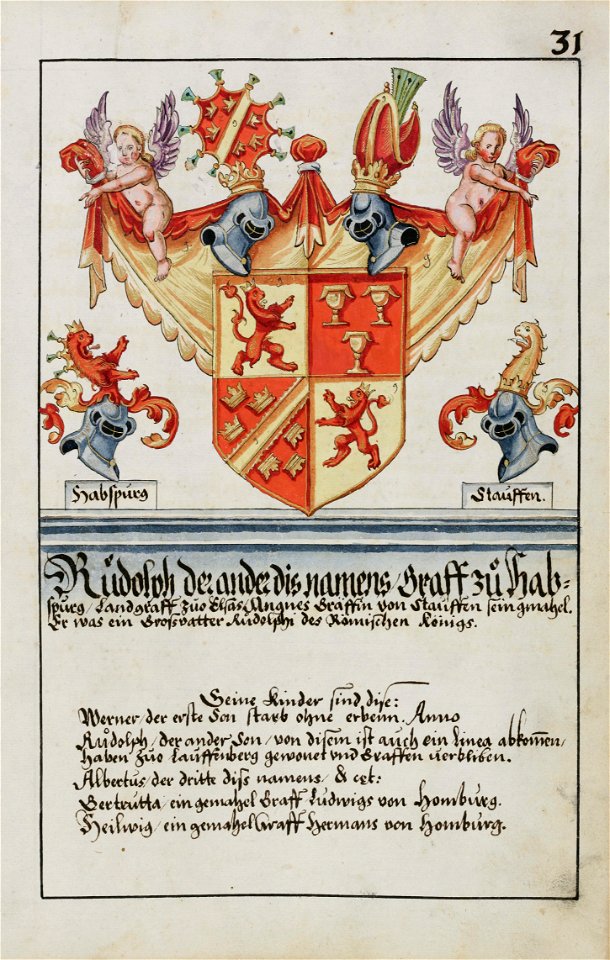 31
Habspurg
Stauffen.
Růdolph der ander dis namens / Graff zů Hab=
spurg / Landgraff zuo Elsas Angnes Gräffin von Stauffen sein gmahel.
Er was ein Grosvatter Rudolphi des Römischen Königs.
Seine Kinder sind dise:
Werner / der erste Son starb ohne erbenn. Anno
Růdolph / der ander Son / von disem ist auch ein Linea abkommen /
haben zuo Lauffenberg gewonet und Graffen verbliben.
Albertus / der dritte diss namens / & cęt:
Gertrutta / ein gemahel Graff Ludwigs von Homburg.
Heilwig / ein gemahel Graff Hermans von Homburg.